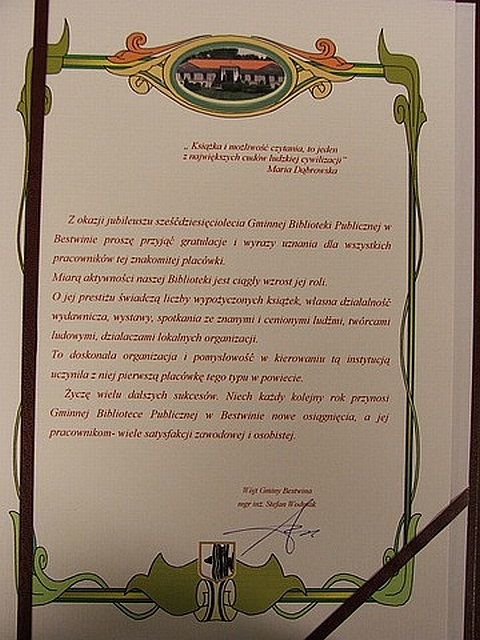 „ Książka i możliwość czytania, to jeden
z największych cudów ludzkiej cywilizacji"
Maria Dąbrowska
Z okazji jubileuszu sześćdziesięciolecia Gminnej Biblioteki Publicznej w
Bestwinie proszę przyjąć gratulacje i wyrazy uznania dla wszystkich
pracowników tej znakomitej placówki.
Miarą aktywności naszej Biblioteki jest ciągły wzrost jej roli.
O jej prestiżu świadczą liczby wypożyczonych książek, własna działalność
wydawnicza, wystawy, spotkania ze znanymi i cenionymi ludźmi, twórcami
ludowymi, działaczami lokalnych organizacji.
To doskonała organizacja i pomysłowość w kierowaniu tą instytucją
uczyniła z niej pierwszą placówkę tego typu w powiecie.
Życzę wielu dalszych sukcesów. Niech każdy kolejny rok przynosi
Gminnej Bibliotece Publicznej w Bestwinie nowe osiągnięcia, a jej
pracownikom- wiele satysfakcji zawodowej i osobistej.
Wójt Gminy Bestwina
mgr inż. Stefan Wodniak